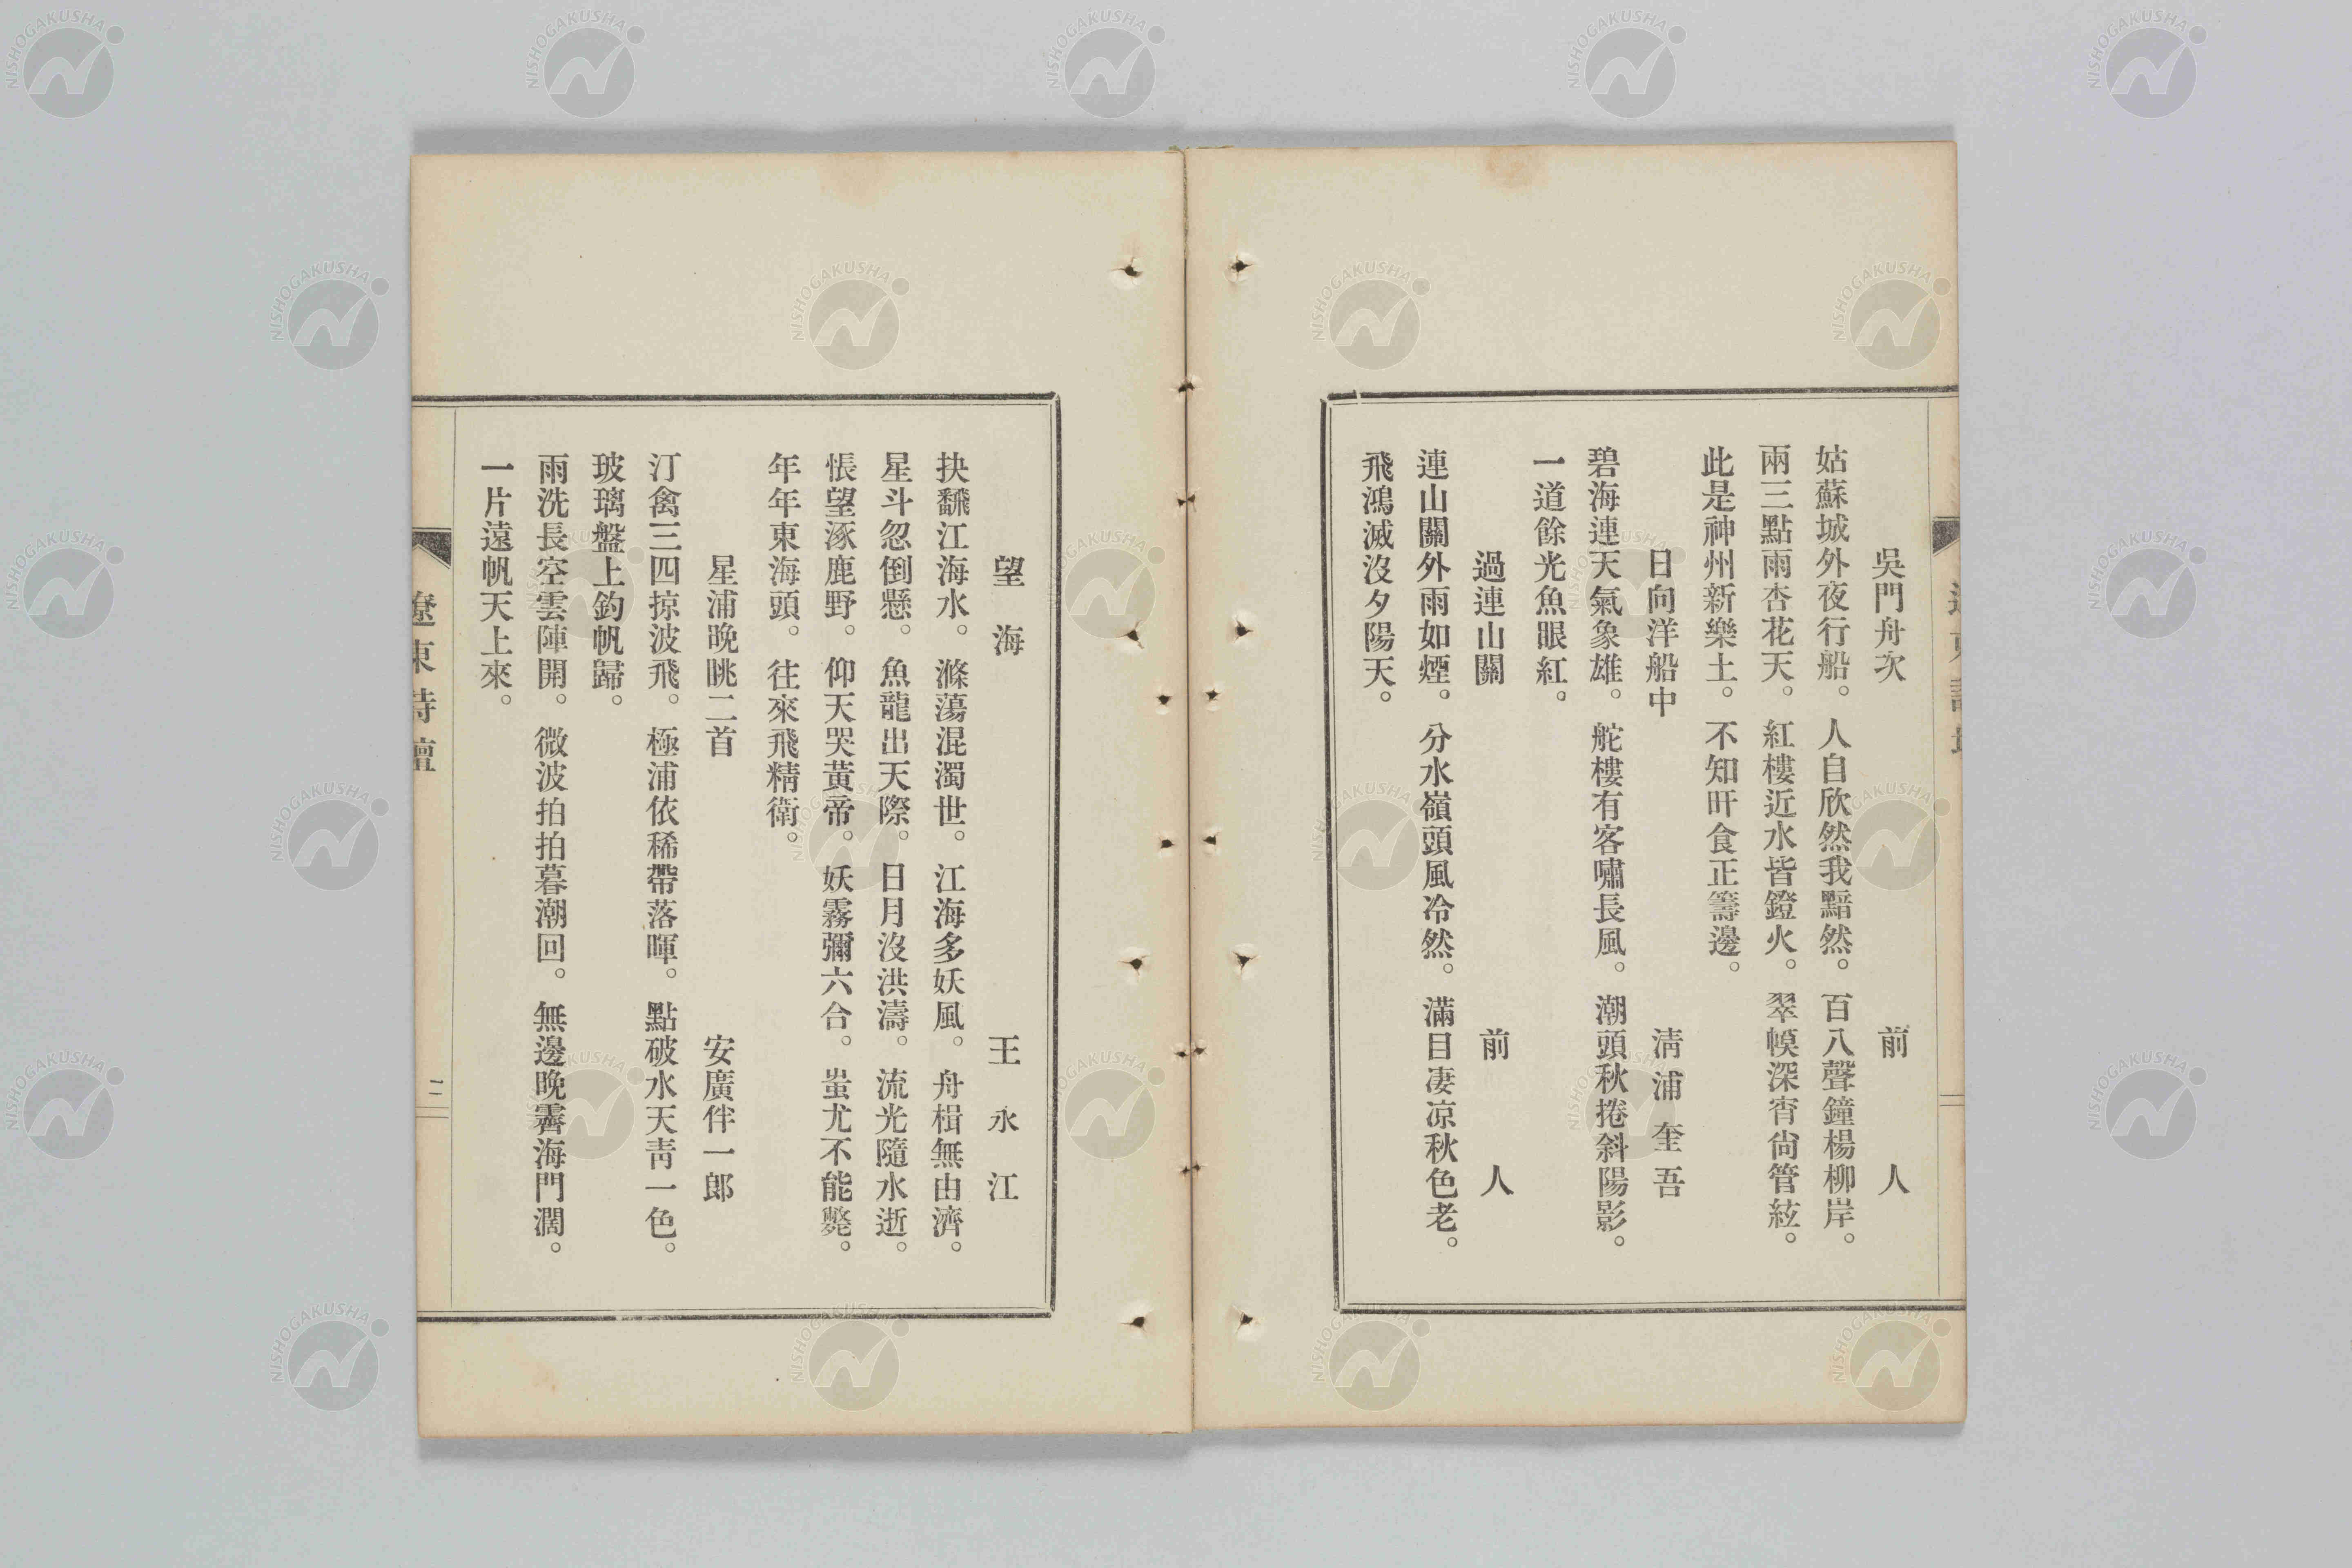 吳門舟次　前人
姑蘇城外夜行船。人自欣然我黯然。百八聲鐘楊柳岸。
兩三點雨杏花天。紅樓近水皆鐙火。翠幙深宵尙管絃。
此是神州新樂土。不知旰食正籌邊。
日向洋船中　淸浦奎吾
碧海連天氣象雄。舵樓有客嘯長風。潮頭秋捲斜陽影。
一道餘光魚眼紅。
過連山關　前人
連山關外雨如煙。分水嶺頭風冷然。滿目凄凉秋色老。
飛鴻滅沒夕陽天。
望海　王永江
抉飜江海水。滌蕩混濁世。江海多妖風。舟楫無由濟。
星斗忽倒懸。魚龍出天際。日月沒洪濤。流光隨水逝。
悵望涿鹿野。仰天哭黃帝。妖霧彌六合。蚩尤不能斃。
年年東海頭。往來飛精衛。
星浦晚眺二首　安廣伴一郎
汀禽三四掠波飛。極浦依稀帶落暉。點破水天靑一色。
玻璃盤上鈞帆歸。
雨洗長空雲陣開。微波拍拍暮潮回。無邊晚霽海門濶。
一片遠帆天上來。
遼東詩壇
二
NISHOGAKUSHA